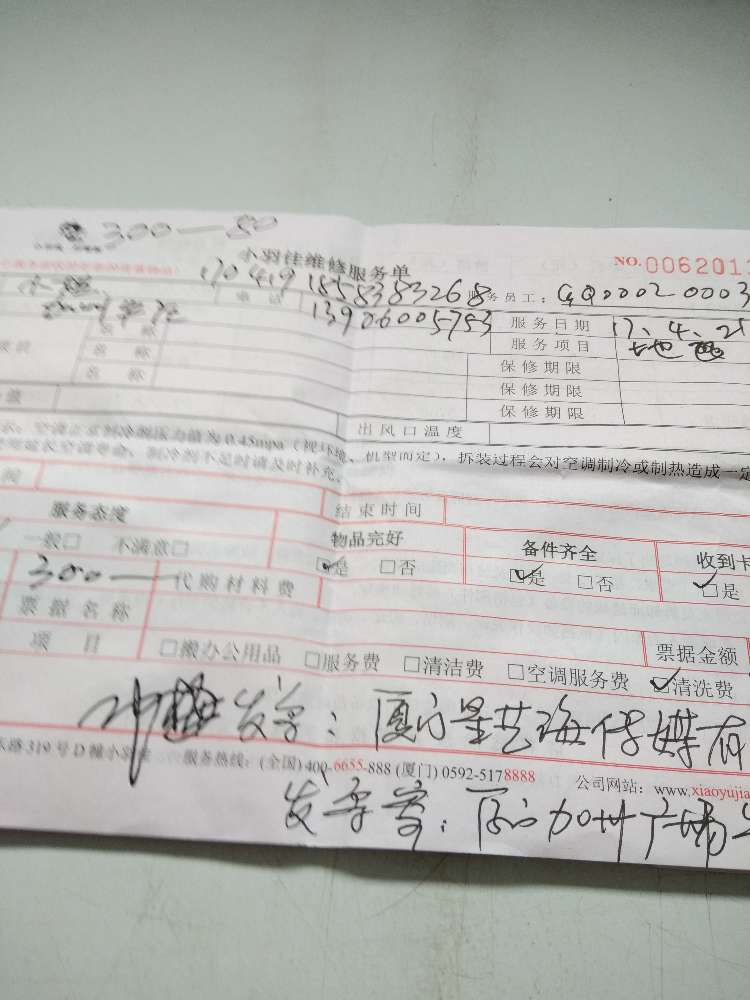 300—80
小羽佳维修服务单
NO.006201
170419 18583833268 服务员工：GQ0002-0003
电话 13906005753 服务日期 17、4、21
名称 服务项目 地毯
名称 保修期限
名称 保修期限
保修期限
出风口温度
空调正常制冷剂压力值为0.45mpa（视环境、机型而定），拆装过程会对空调制冷或制热造成一定
制冷剂不足时请及时补充。
间 结束时间
服务态度 物品完好 备件齐全 收到卡
一般□ 不满意□ ☑是 □否 ☑是 □否 ☑是
300— 代购材料费
票据名称 票据金额
项目 □搬办公用品 □服务费 □清洁费 □空调服务费 ☑清洗费
发票：厦门星艺海传媒有
路319号D幢小羽佳 服务热线：(全国)400-6655-888 (厦门)0592-5178888 公司网站：www.xiaoyujia
厦门加州广场